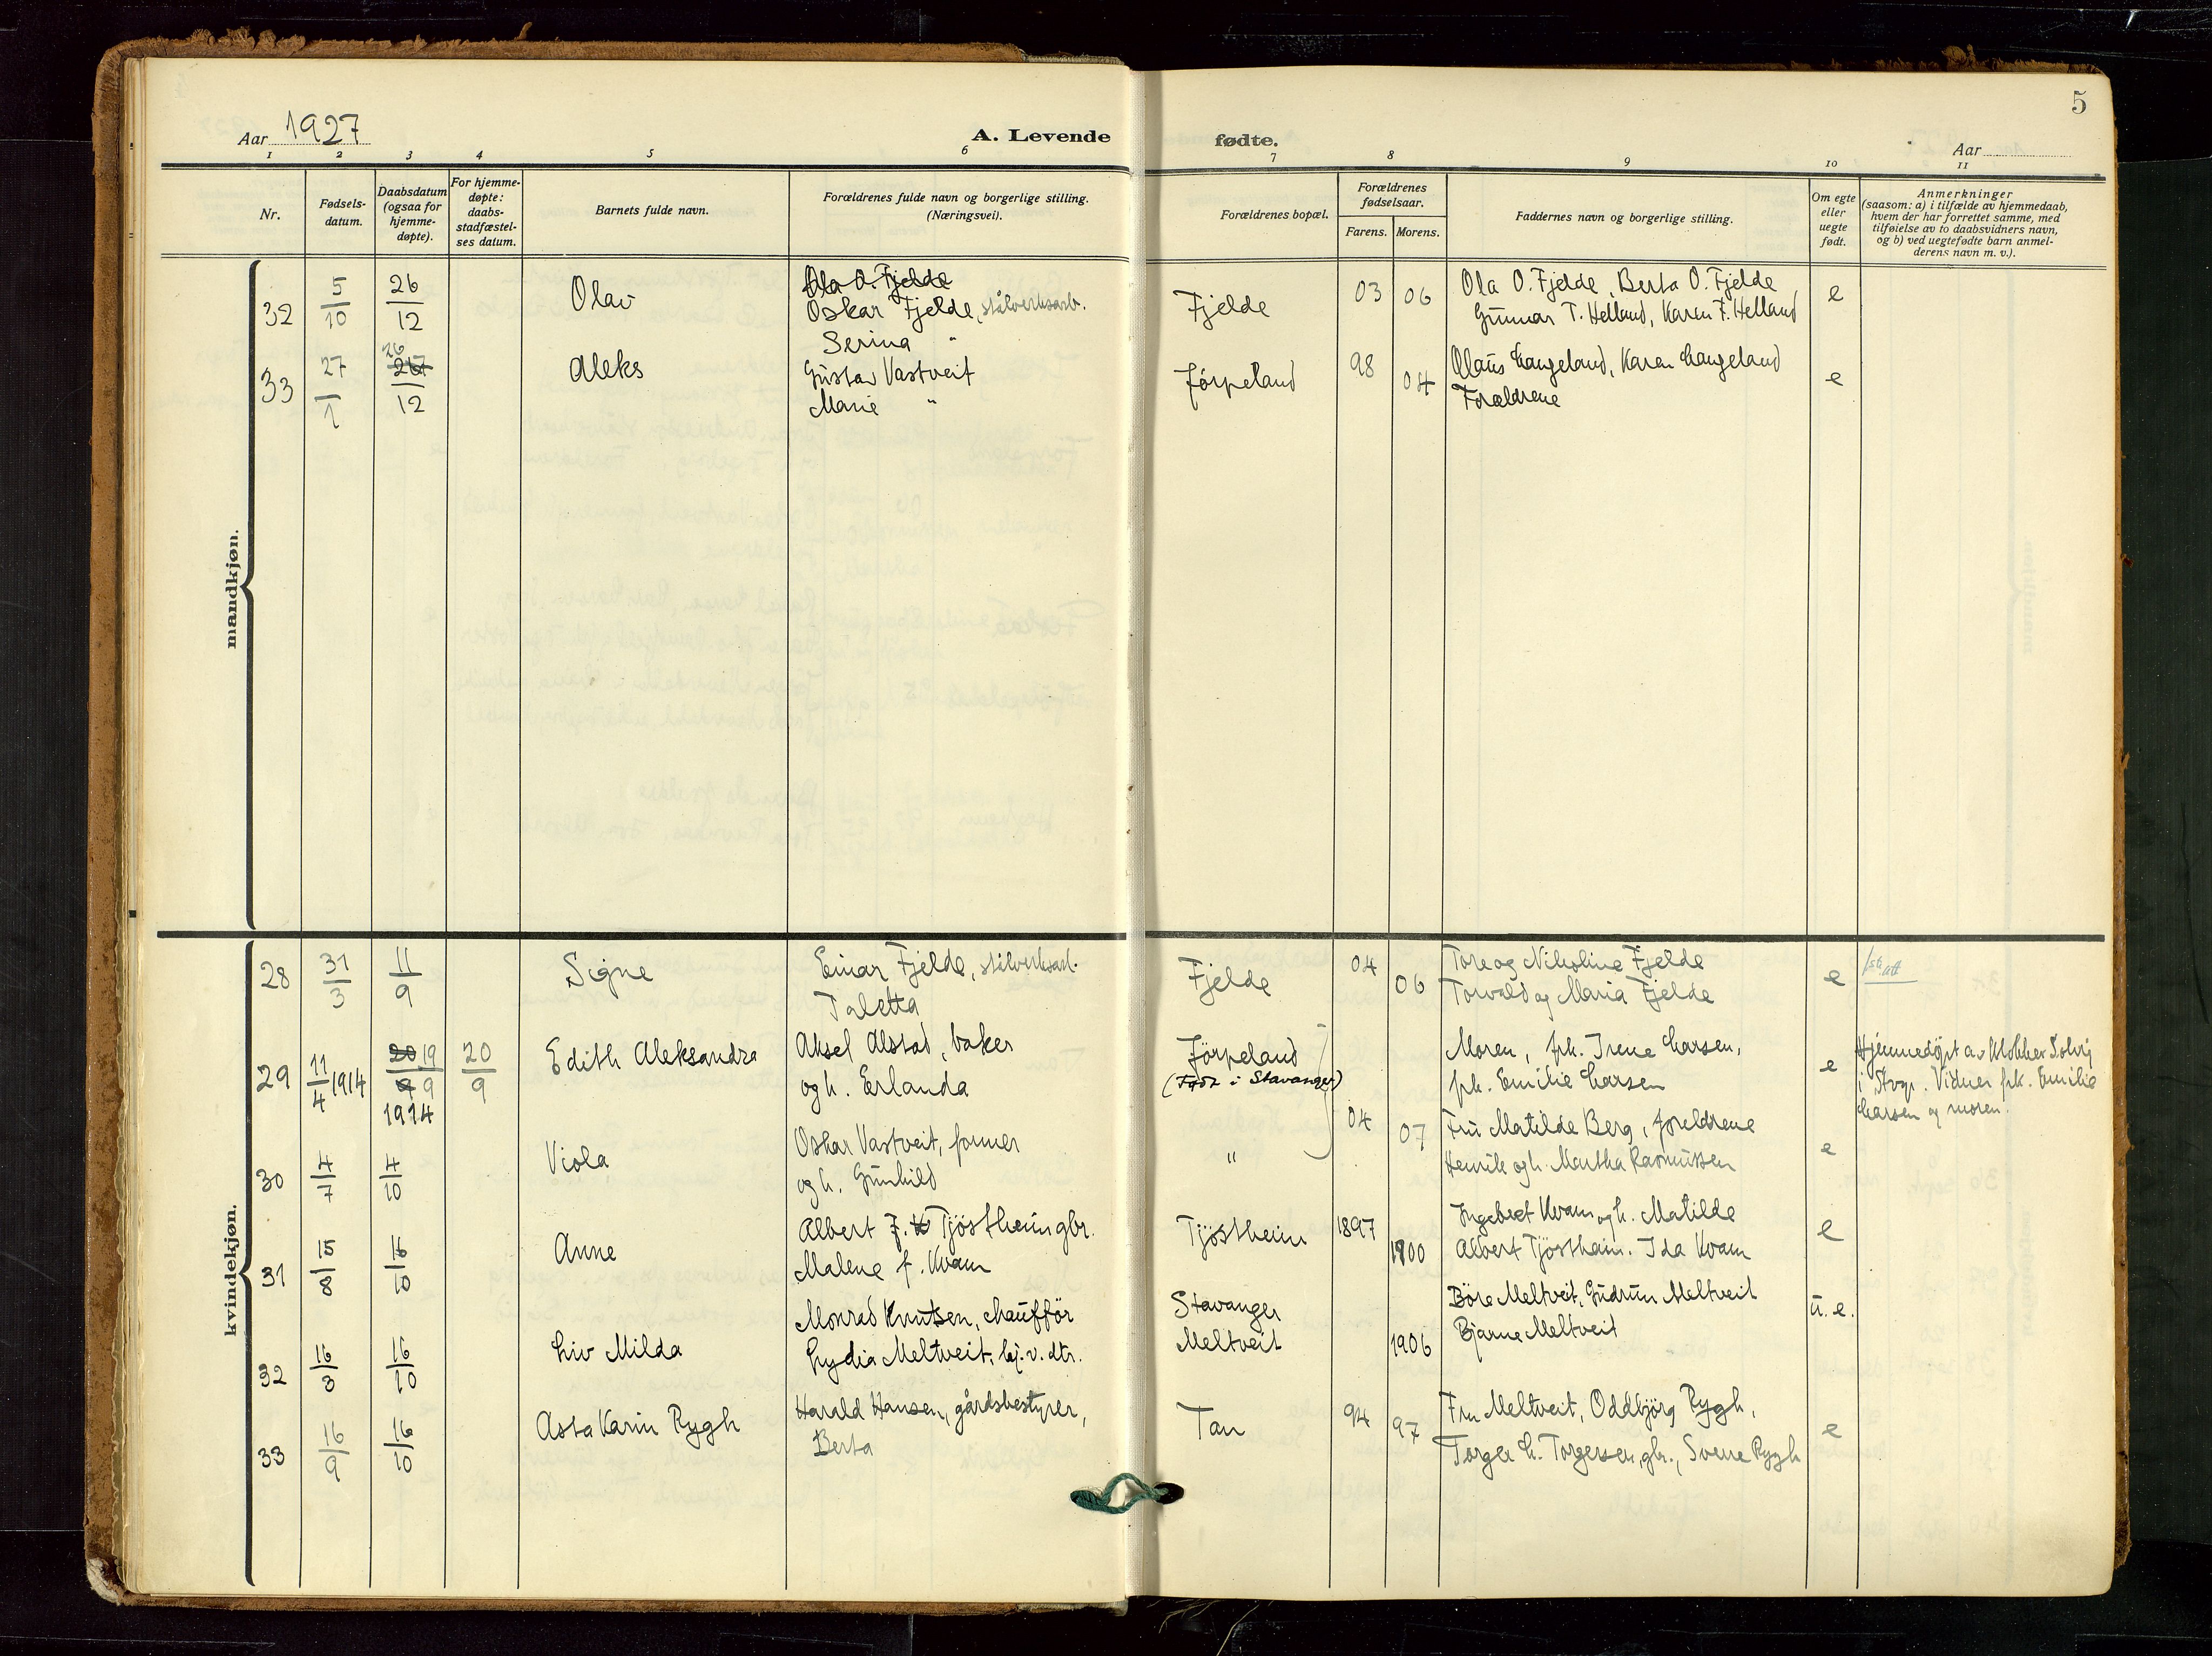 5
Aar 1927
A. Levende fødte.
Aar
1 2 3 4 5 6 7 8 9 10 11
Nr.
Fødsels-
datum.
Daabsdatum
(ogsaa for
hjemme-
døpte).
For hjemme-
døpte:
daabs-
stadfæstel-
ses datum.
Barnets fulde navn.
Forældrenes fulde navn og borgerlige stilling.
(Næringsvei).
Forældrenes bopæl.
Forældrenes
fødselsaar.
Farens. Morens.
Faddernes navn og borgerlige stilling.
Om egte
eller
uegte
født.
Anmerkninger
(saasom: a) i tilfælde av hjemmedaab,
hvem der har forrettet samme, med
tilføielse av to daabsvidners navn,
og b) ved uegtefødte barn anmel-
derens navn m. v.).
mandkjøn.
32 5/10 26/12 Olav
Ola O. Fjelde
Oskar Fjelde, stålverksarb.
Serina "
Fjelde 03 06
Ola O. Fjelde, Berta O. Fjelde
Gunnar T. Helland, Karen F. Helland
e
33 27/1 26/12 Aleks
Gustav Vastveit
Marie "
Jørpeland 98 04
Olaus Langeland, Karen Langeland
Forældrene
e
kvindekjøn.
28 31/3 11/9 Signe
Einar Fjelde, stålverksarb.
Taletta
Fjelde 04 06
Tore og Nikoline Fjelde
Torvald og Maria Fjelde
e
29 11/4 1914 20 19/9 9 1914 20/9 Edith Aleksandra
Aksel Alstad, baker
og h. Erlanda
Jørpeland
(Født i Stavanger)
Moren, frk. Irene Larsen,
frk. Emilie Larsen
e
Hjemmedöpt av klokker Solvij
i Stvgr. Vidner frk. Emilie
Larsen og moren.
30 4/7 4/10 Viola
Oskar Vastveit, former
og h. Gunhild
" 04 07
Fru Matilde Berg, foreldrene
Henrik og h. Martha Rasmussen
e
31 15/8 16/10 Anne
Albert J. Tjöstheim gbr.
Malene f. Kvam
Tjöstheim 1897 1900
Ingebret Kvam og h. Matilde
Albert Tjöstheim. Ida Kvam
e
32 16/3 16/10 Liv Milda
Monrad Knutsen, chaufför
Lydia Meltveit, hj. v. dtr.
Stavanger
Meltveit 1906
Böre Meltveit, Gudrun Meltveit
Bjarne Meltveit
u. e.
33 16/9 16/10 Asta Karin Rygh
Harald Hansen, gårdsbestyrer,
Berta
Tau 94 97
Fru Meltveit, Oddbjörg Rygh,
Torger L. Torgersen, gbr., Sverre Rygh
e